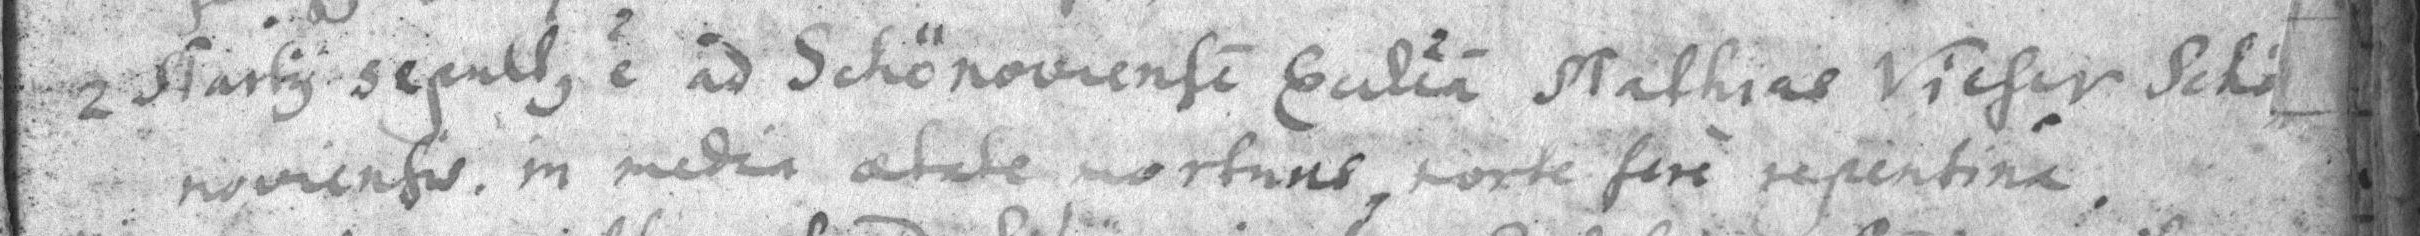 2 Martÿ sepultꝰ ē ad Schönoviensē Eccl̄iā Mathias Vieser Schö
noviensis. in media ætate mortuus, morte ferè repentinâ.